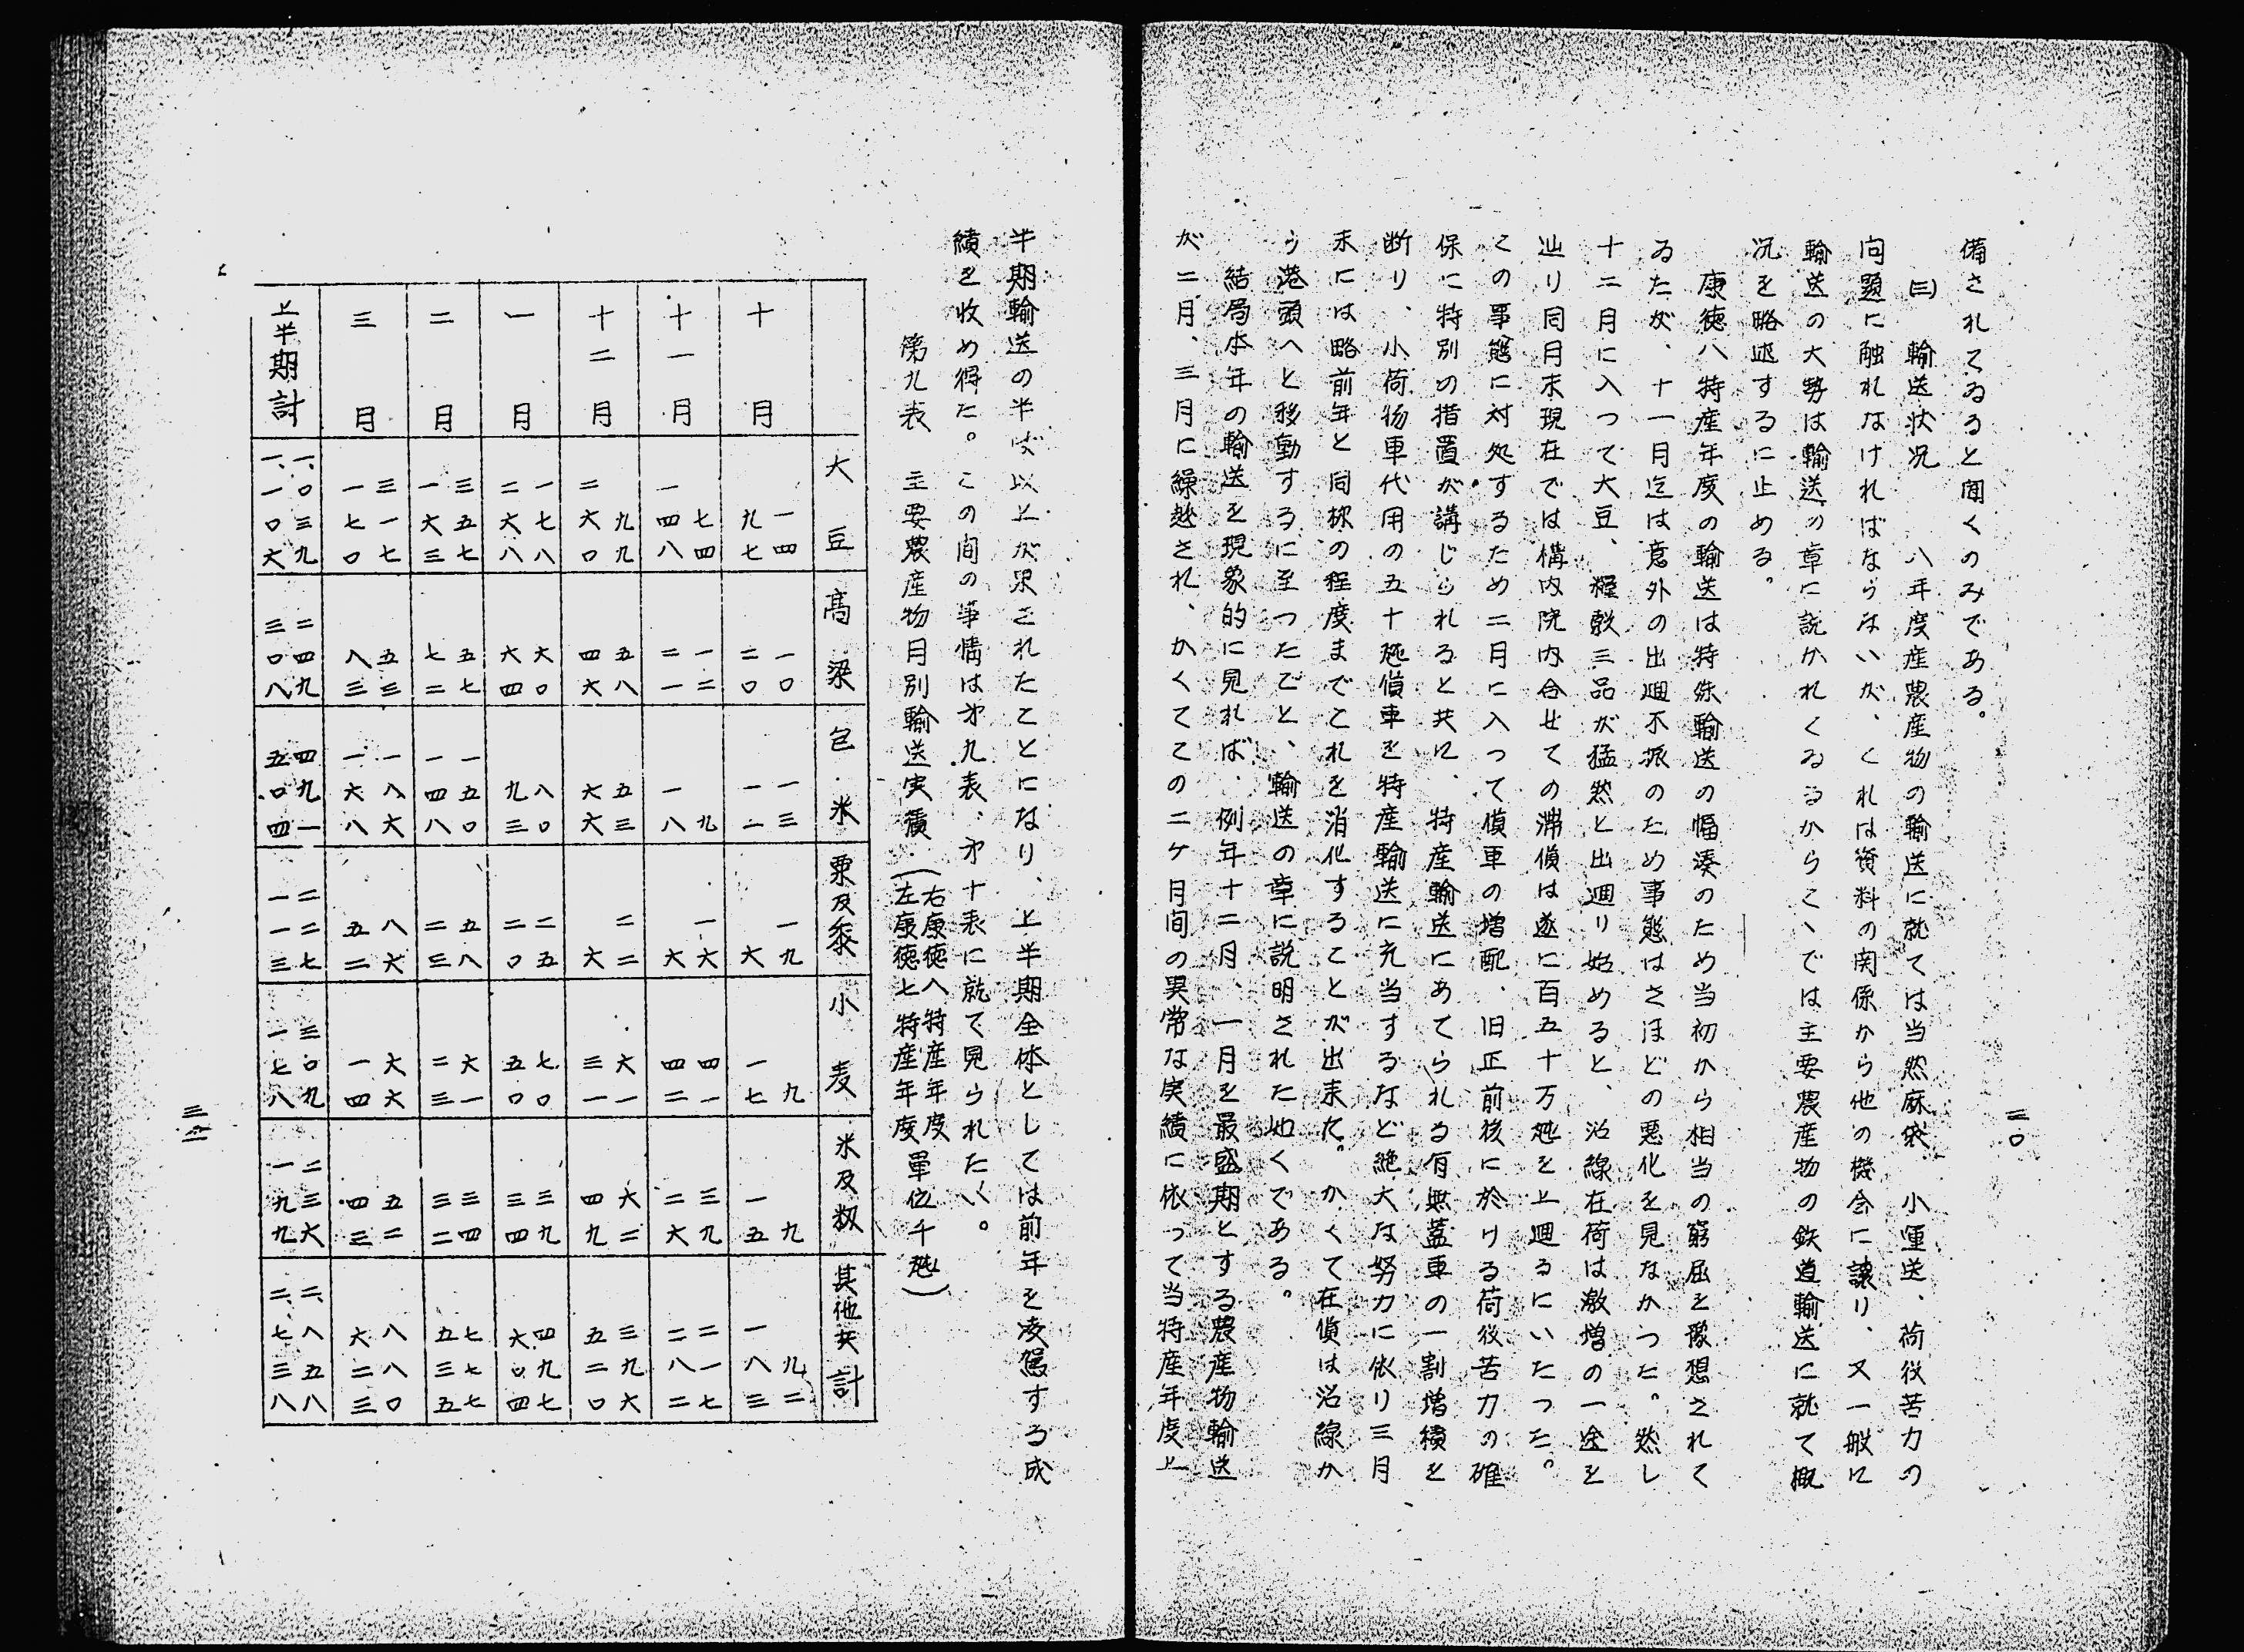 三〇
備されてゐると聞くのみである。
(三) 輸送状況 八年度産農産物の輸送に就ては当然麻袋、小運送、荷役苦力の
問題に触れなければならないが、これは資料の関係から他の機会に譲り、又一般に
輸送の大勢は輸送の章に説かれてゐるからこゝでは主要農産物の鉄道輸送に就て概
況を略述するに止める。
康徳八特産年度の輸送は特殊輸送の幅湊のため当初から相当の窮屈を豫想されて
ゐたが、十一月迄は意外の出廻不振のため事態はさほどの悪化を見なかつた。然し
十二月に入つて大豆、糧穀三品が猛然と出廻り始めると、沿線在荷は激増の一途を
辿り同月末現在では構内院内合せての滞貨は遂に百五十万瓲を上廻るにいたつた。
この事態に対処するため二月に入つて貨車の増配、旧正前後に於ける荷役苦力の確
保に特別の措置が講じられると共に、特産輸送にあてられる有無蓋車の一割増積を
断り、小荷物車代用の五十瓲貨車を特産輸送に充当するなど絶大な努力に依り三月
末には略前年と同様の程度までこれを消化することが出来た。かくて在貨は沿線か
ら港頭へと移動するに至つたこと、輸送の章に説明された如くである。
結局本年の輸送を現象的に見れば、例年十二月、一月を最盛期とする農産物輸送
が二月、三月に繰越され、かくてこの二ケ月間の異常な実績に依って当特産年度上
半期輸送の半ば以上が果されたことになり、上半期全体としては前年を凌駕する成
績を收め得た。この間の事情は第九表、第十表に就て見られたい。
第九表 主要農産物月別輸送実積 (右康徳八特産年度 左康徳七特産年度 單位千瓲)
大豆 高粱 包米 粟及黍 小麦 米及籾 其他共計
十月 一四 一〇 一三 一九 九 九 九二
九七 二〇 一二 六 一七 一五 一八三
十一月 七四 一二 九 一六 四一 三九 二一七
一四八 二一 一八 六 四二 二六 二八二
十二月 九九 五八 五三 二二 六一 六二 三九六
二六〇 四六 六六 六 三一 四九 五二〇
一月 一七八 六〇 八〇 二五 七〇 三九 四九七
二六八 六四 九三 二〇 五〇 三四 六〇四
二月 三五七 五七 一五〇 五八 六一 三四 七七七
一六三 七二 一四八 二三 二三 三二 五三五
三月 三一七 五三 一八六 八六 六六 五二 八八〇
一七〇 八三 一六八 五二 一四 四三 六二三
上半期計 一、〇三九 二四九 四九一 二二七 三〇九 二三六 二、八五八
一、一〇六 三〇八 五〇四 一一三 一七八 一九九 二、七三八